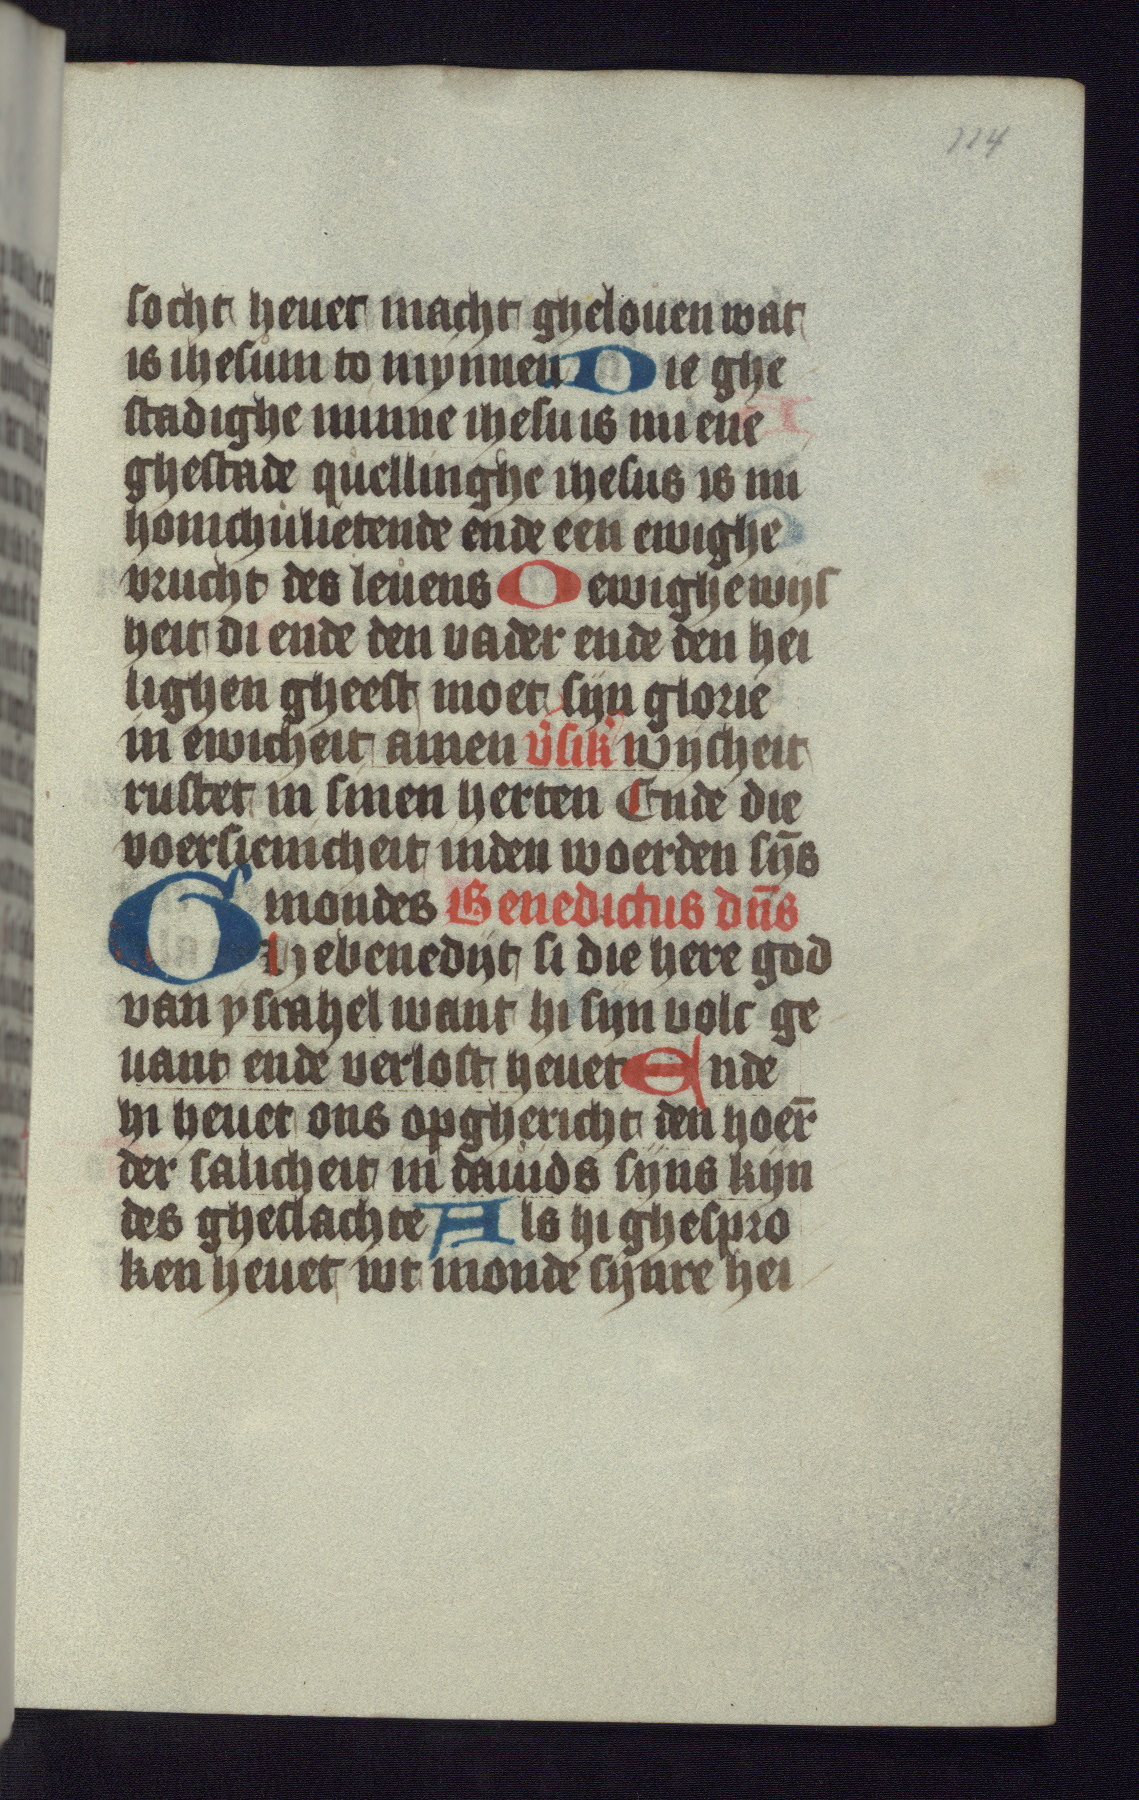 114
socht heuet macht ghelouen wat
is ihesum to mynnen Die ghe
stadighe minne ihesu is nu ene
ghestade quellinghe ihesus is nu
honichulietende ende een ewighe
vrucht des leuens O ewighe wijs
heit di ende den vader ende den hei
lighen gheest moet sijn glorie
in ewicheit amen v̄sik̄ wijcheit
rustet in sinen herten Ende die
voersienicheit inden woerden sijn̄s
mondes Benedictus dn̄s
Ghebenedijt si die here god
van ysrahel want hi sijn volc ge
uant ende verlost heuet Ende
hi heuet ons opghericht den hoer̄
der salicheit in dauids sijns kijn
des gheslachte Als hi ghespro
ken heuet wt monde sijnre hei